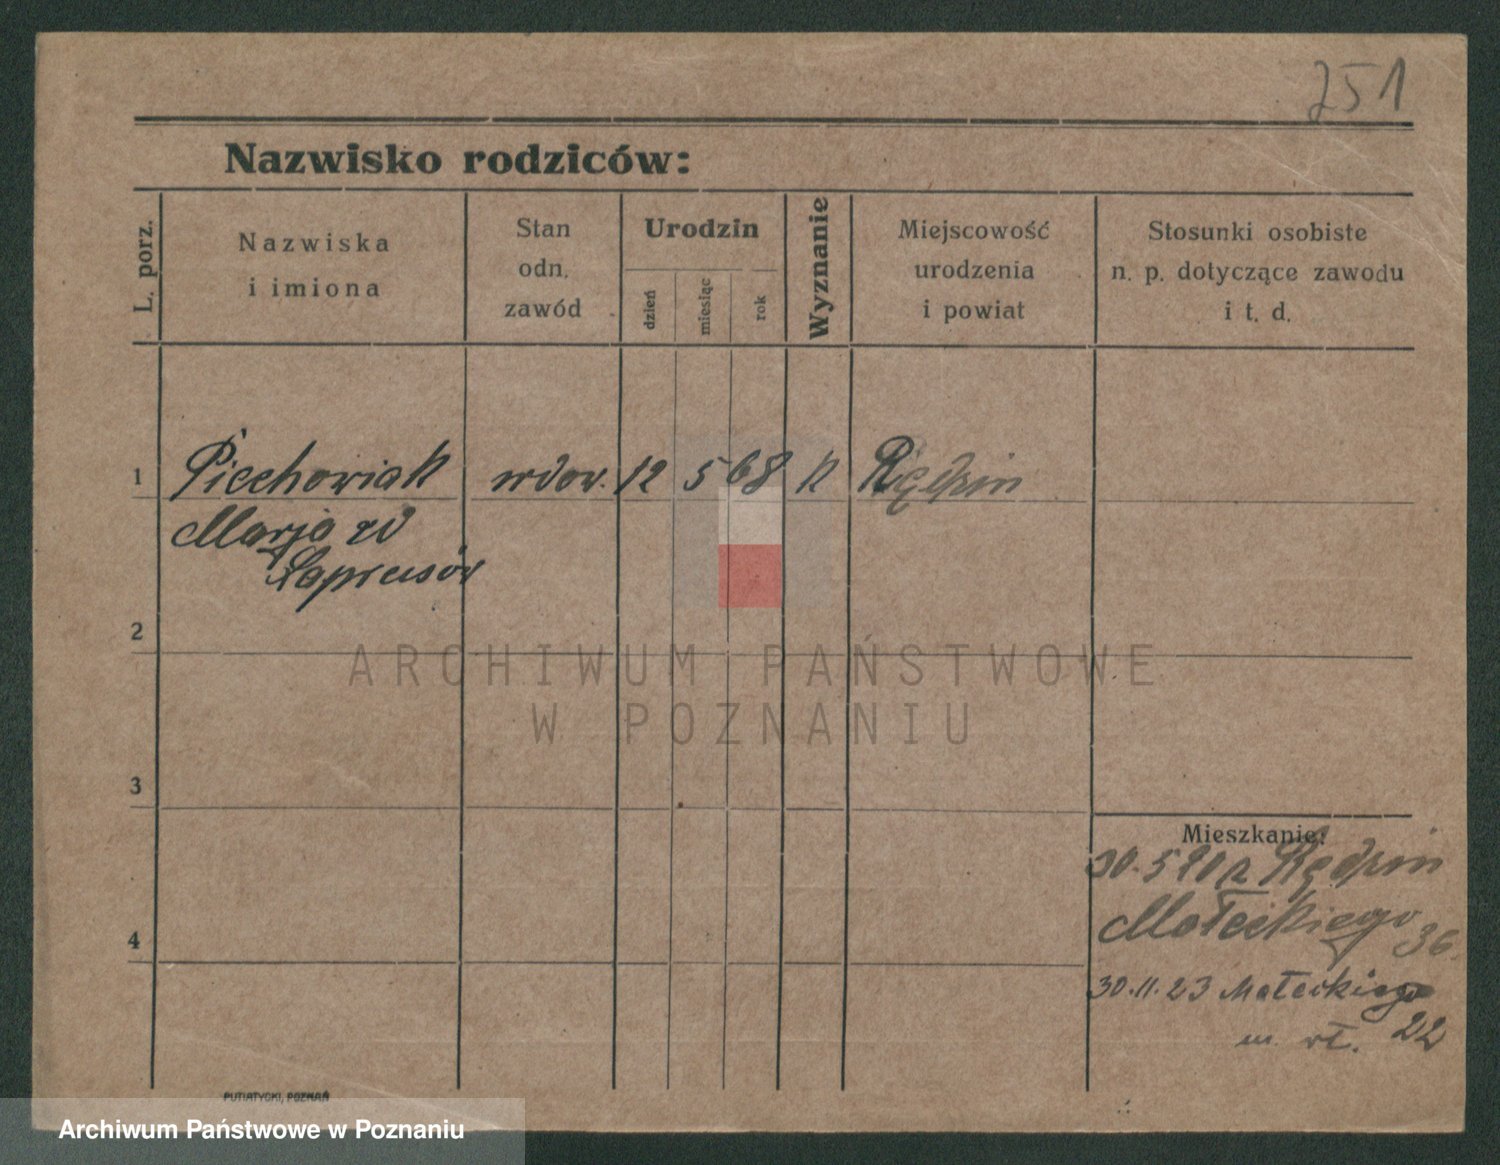 251
Nazwisko rodziców:
L. porz.
Nazwiska
i imiona
Stan
odn.
zawód
Urodzin
dzień
miesiąc
rok
Wyznanie
Miejscowość
urodzenia
i powiat
Stosunki osobiste
n. p. dotyczące zawodu
i t. d.
1
Piechowiak wdow. 12 5 68 k
Marja
2
ARCHIWUM PAŃSTWOWE
W POZNANIU
3
Mieszkanie:
30.5 20 z
Małeckiego 36.
4
30.11.23 Małeckiego
22
m. wł.
PUTIATYCKI, POZNAŃ
Archiwum Państwowe w Poznaniu